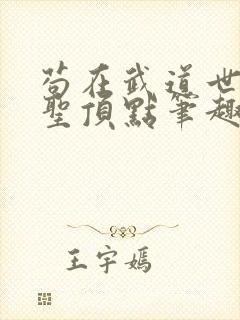 苟在武道世
聖頂點筆趣
王宇嫣